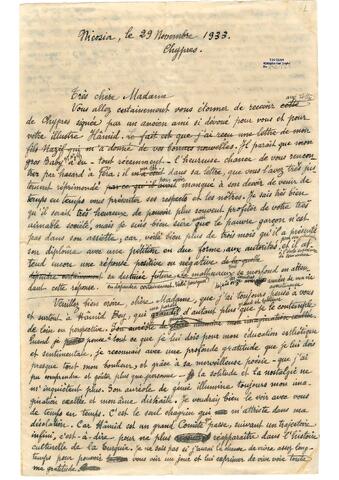 Nicosia, le 29 Novembre 1933.
Chypres.
Très chère Madame
Vous allez certainement vous étonner de recevoir cette
de Chypres signée par un ancien ami si dévoué pour vous et pour
votre illustre Hâmid. Le fait est que j'ai reçu une lettre de mon
fils Nazif qui m'a donné de vos bonnes nouvelles. Il paraît que mon
gros Baby a eu - tout récemment - l'heureuse chance de vous rencon
trer par hasard à Péra; il dans sa lettre, que vous l'avez très jus
tement réprimandé avoir manqué à son devoir de venir de
temps en temps vous présenter ses respects et les nôtres. Je sais très bien
qu'il serait très heureux de pouvoir plus souvent profiter de votre très
aimable société, mais je suis bien sûr que le pauvre garçon n'est
pas dans son assiette, car, voilà bien plus de trois mois qu'il a présenté
son diplôme avec une pétition en due forme aux autorités, et il at
tend encore une réponse positive ou négative
sa destinée future. Le malheureux se morfond en atten
dant cette réponse.
Veuillez bien croire, chère Madame, que j'ai toujours pensé à vous
et surtout à Hâmid Bey, qui grandit d'autant plus que je le contemple
de loin en perspective.
Quand je pense tout ce que je lui dois pour mon éducation esthétique
et sentimentale, je reconnais avec une profonde gratitude que je lui dois
presque tout mon bonheur, et grâce à sa merveilleuse poésie - que j'ai
pu comprendre et goûter plus que personne - la solitude et la nostalgie ne
m'inquiètent plus. Son auréole de génie illumine toujours mon ima
gination exaltée et mon âme distraite. Je voudrais bien le voir avec vous
de temps en temps. C'est le seul chagrin qui m'attriste dans ma
désolation. Car Hâmid est un grand Comète passé, suivant un trajectoire
infini, c'est-à-dire, pour ne plus réapparaître dans l'histoire
culturelle de la Turquie. Je ne sais pas si j'aurai la chance de vivre assez long
temps pour pouvoir vous voir un jour et lui exprimer de vive voix toute
ma gratitude.